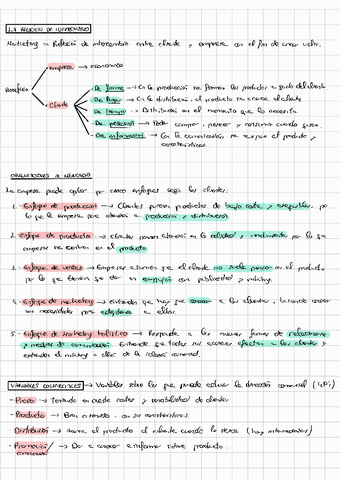 1.1 RELACIÓN DE INTERCAMBIO
Marketing = Relación de intercambio entre cliente y empresa con el fin de crear valor.
Empresa → económico
Beneficio
Cliente
De forma → En la producción se forman los productos a gusto del cliente
De lugar → En la distribución, el producto se acerca al cliente
De tiempo → Distribución en el momento que lo necesita
De posesión → Poder comprar, poseer y consumir cuando quiera
De información → Con la comunicación se explica el producto y
características
ORIENTACIONES AL MERCADO
La empresa puede optar por cinco enfoques según los clientes:
1.- Enfoque de producción → Clientes quieren productos de bajo coste y asequibles, por
lo que la empresa debe atender a producción y distribución.
2.- Enfoque de producto → clientes ponen atención en la calidad y rendimiento por lo que
empresas se centran en el producto.
3.- Enfoque de ventas → Empresas asumen que el cliente no suele pensar en el producto,
por lo que tienen que dar un empujón con publicidad y
4.- Enfoque de marketing → entienden que hay que conocer a los clientes, buscando conocer
sus necesidades para adaptarse a ellas.
5.- Enfoque de Marketing holístico → Responde a las nuevas formas de relacionarse
y medios de comunicación. Entiende que todas sus acciones afectan a los clientes y
extienden el mktng a más de la relación comercial.
VARIABLES CONTROLABLES → Variables sobre las que puede actuar la dirección comercial (4P's)
- Precio → Teniendo en cuenta costes y posibilidad de clientes
- Producto → Bien o servicio, con sus características.
Distribución → acerca el producto al cliente cuando lo desea (hay intermediarios)
- Promoción/ → Da a conocer e informa sobre producto.
comunicación